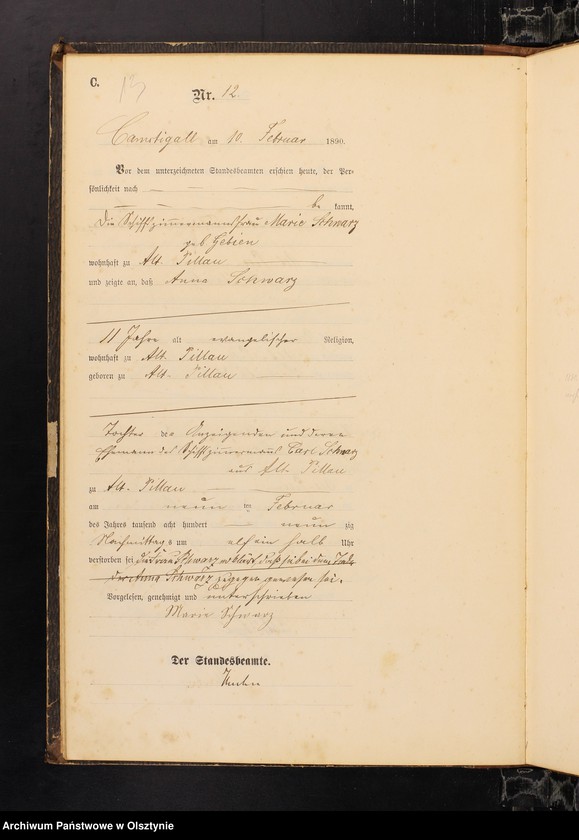 C.
13
Nr. 12.
Camstigall am 10. Februar 1890.
Vor dem unterzeichneten Standesbeamten erschien heute, der Per-
sönlichkeit nach
be kannt,
die Schiffszimmermannsfrau Marie Schwarz
geb. Gebien
wohnhaft zu Alt. Pillau
und zeigte an, daß Anna Schwarz
11 Jahre alt evangelischer Religion,
wohnhaft zu Alt. Pillau
geboren zu Alt. Pillau
Tochter der Anzeigenden und deren
Ehemann des Schiffszimmermanns Carl Schwarz
aus Alt. Pillau
zu Alt. Pillau
am neun ten Februar
des Jahres tausend acht hundert neun zig
Nachmittags um elf ein halb Uhr
verstorben sei die Frau Schwarz erklärt daß sie bei dem Tode
der Anna Schwarz zugegen gewesen sei.
Vorgelesen, genehmigt und unterschrieben
Marie Schwarz
Der Standesbeamte.
Archiwum Państwowe w Olsztynie